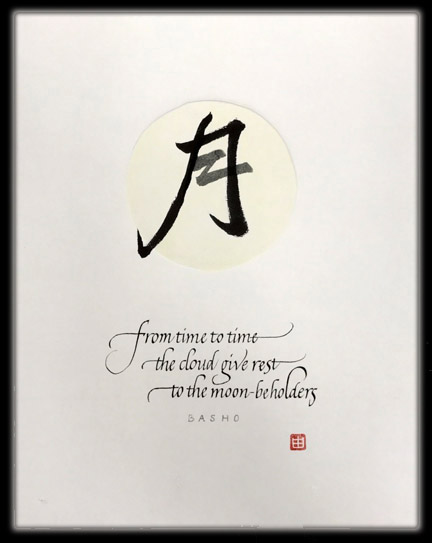 月
from time to time
the cloud give rest
to the moon-beholders
BASHO